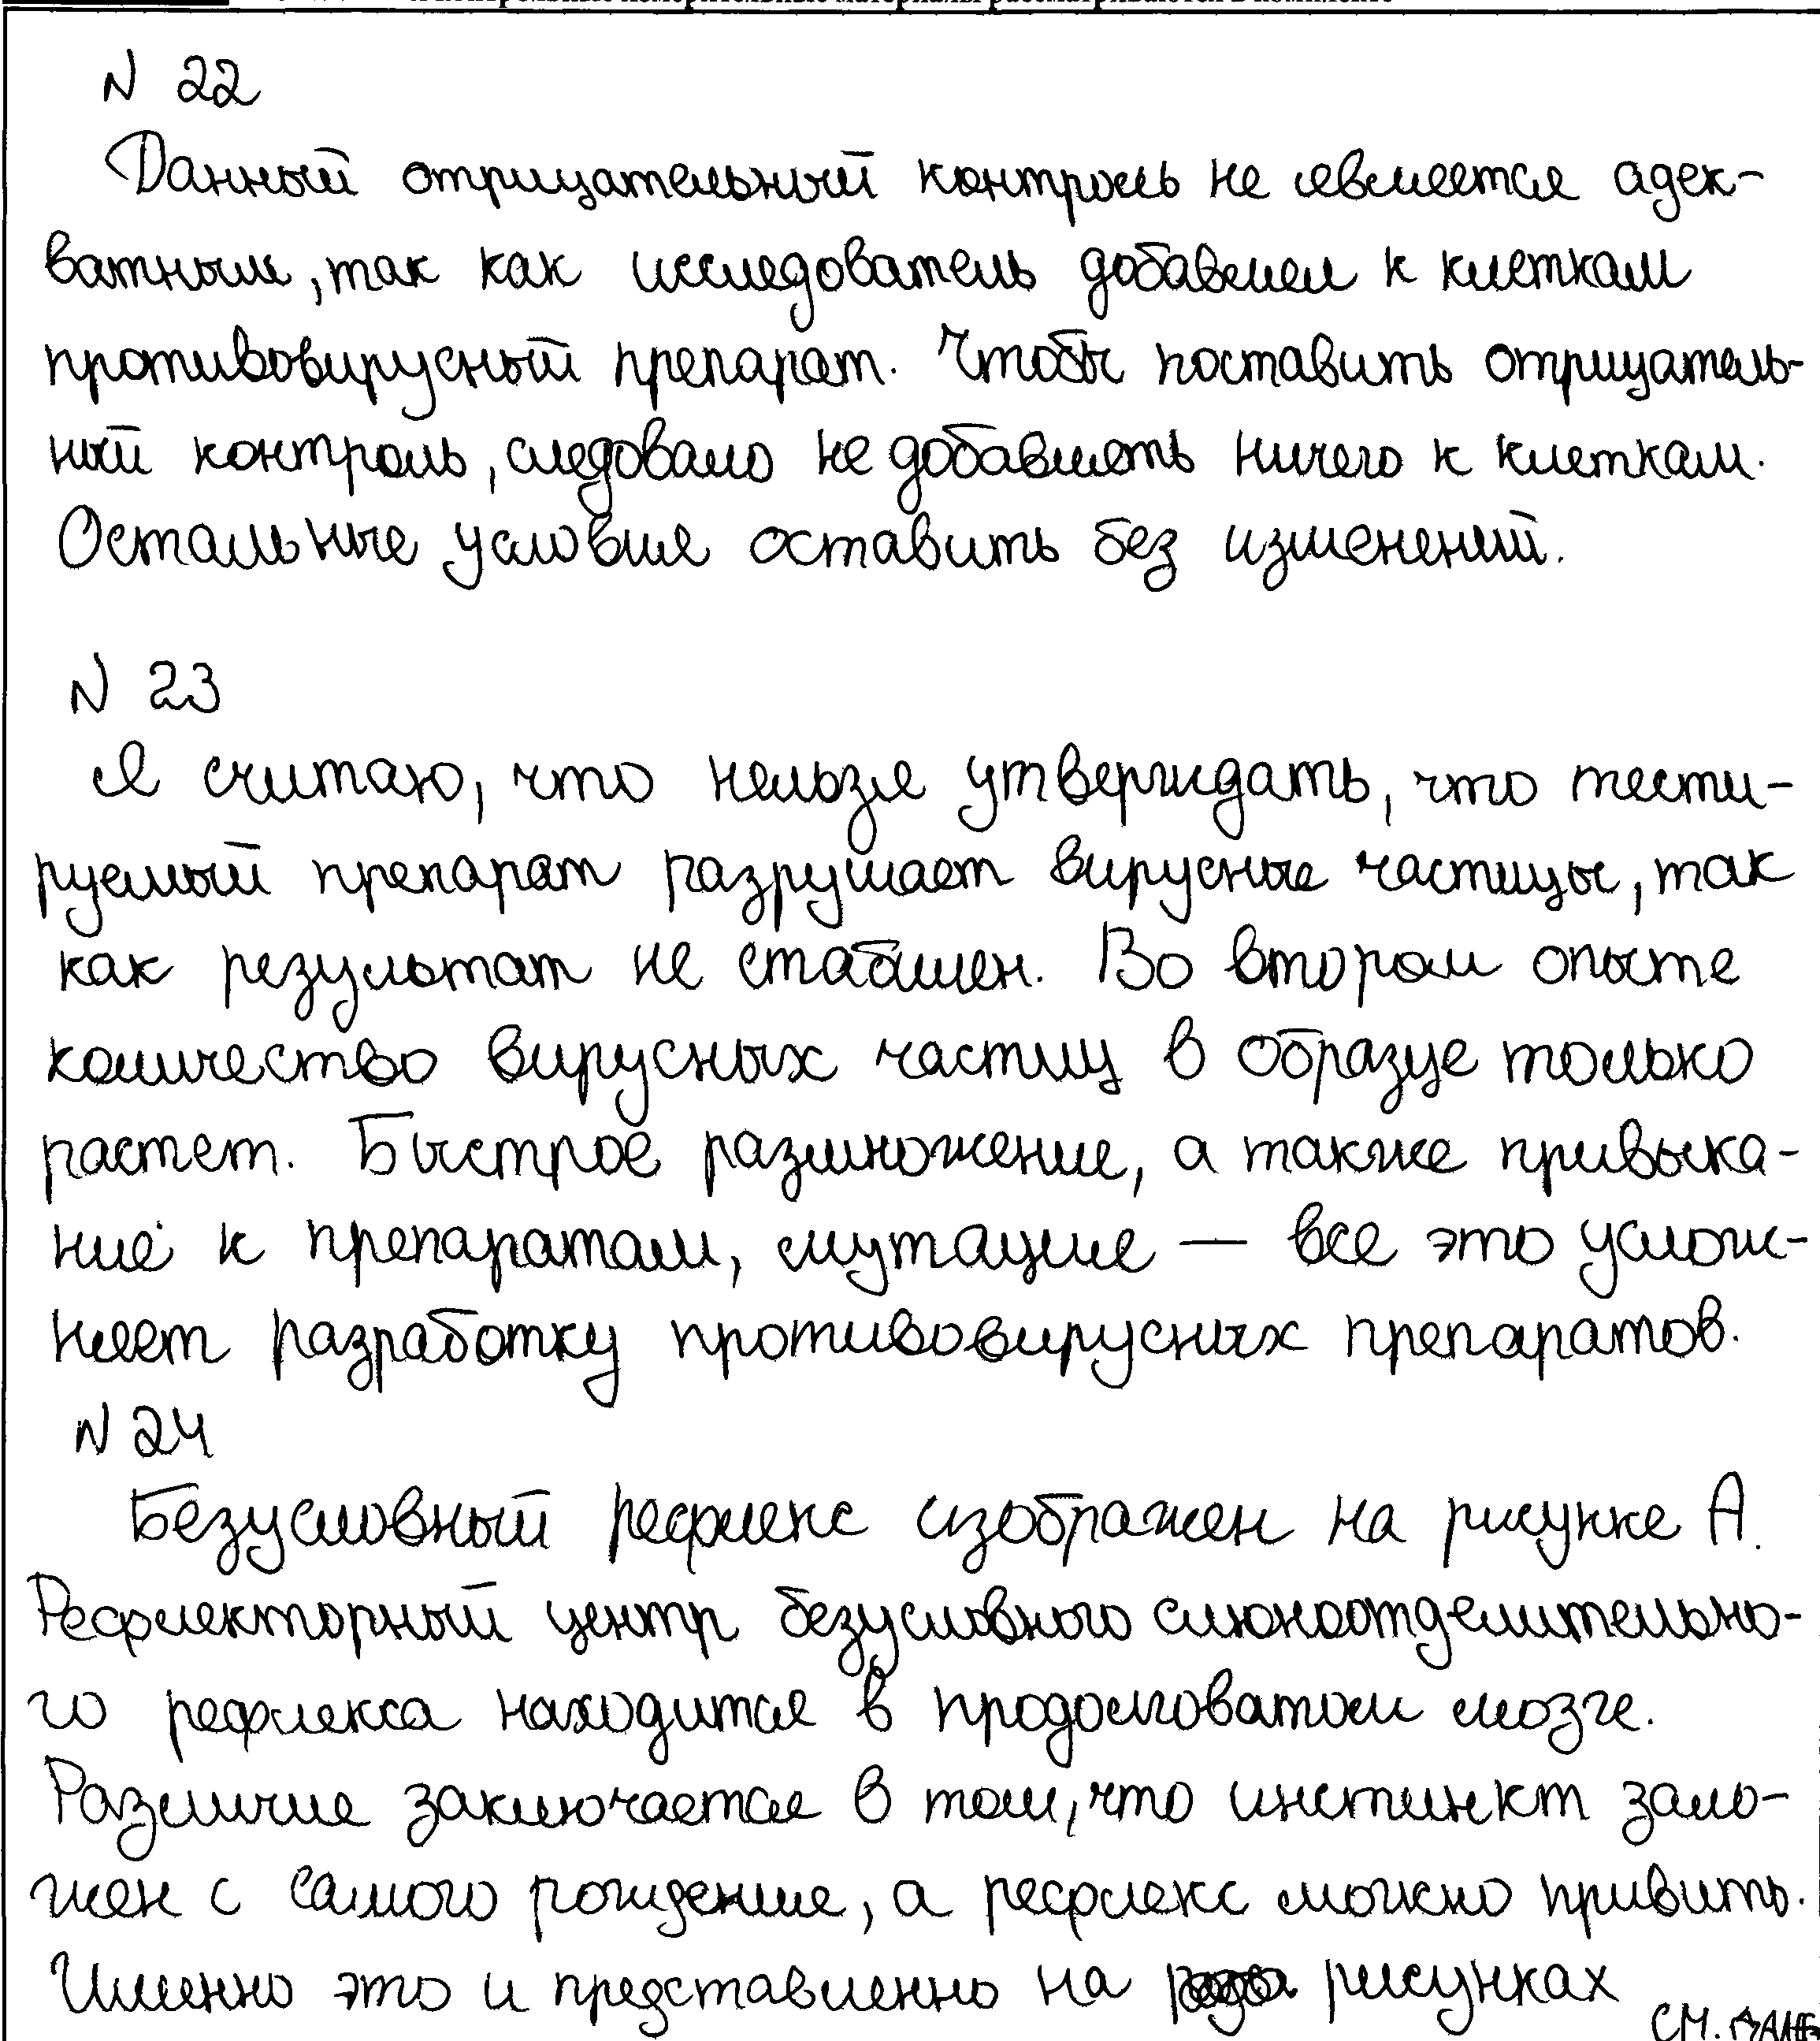 N 22
Данный отрицательный контроль не является адек-
ватным, так как исследователь добавлял к клеткам
противовирусный препарат. Чтобы поставить отрицатель-
ный контроль, следовало не добавлять ничего к клеткам.
Остальные условия оставить без изменений.
N 23
Я считаю, что нельзя утверждать, что тести-
руемый препарат разрушает вирусные частицы, так
как результат не стабилен. Во втором опыте
количество вирусных частиц в образце только
растет. Быстрое размножение, а также привыка-
ние к препаратам, мутация — все это услож-
няет разработку противовирусных препаратов.
N 24
Безусловный рефлекс изображен на рисунке А.
Рефлекторный центр безусловного слюноотделительно-
го рефлекса находится в продолговатом мозге.
Различие заключается в том, что инстинкт зало-
жен с самого рождения, а рефлекс можно привить.
Именно это и представленно на рисунках
см. далее